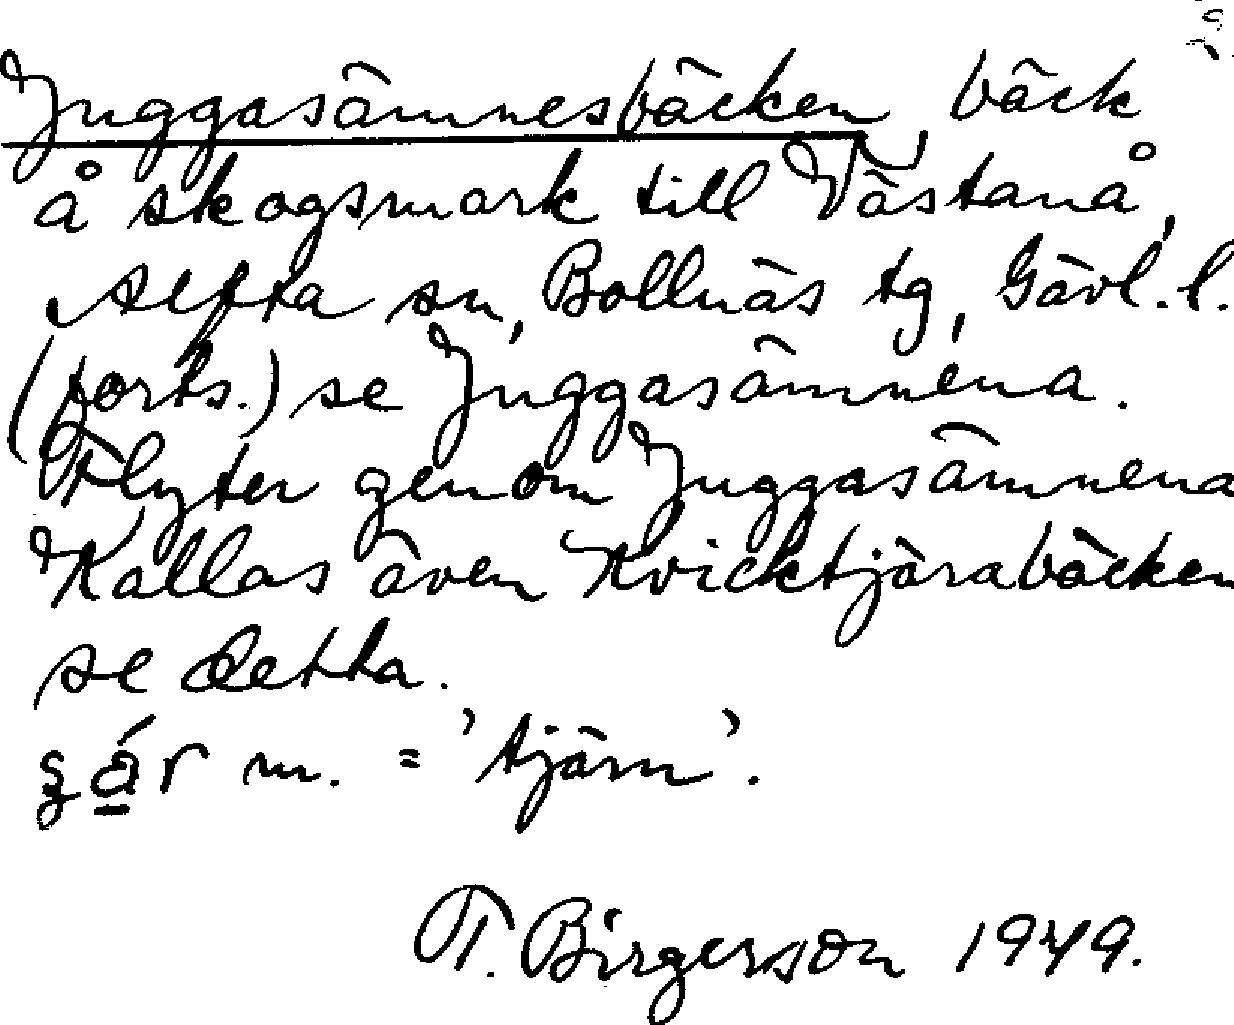 Juggasämnesbäcken, bäck
å skogsmark till Västanå,
Alfta sn, Bollnäs tg, Gävl. l.
(forts.) se Juggasämnena.
Flyter genom Juggasämnena
Kallas även Kvicktjärabäcken
se detta.
m. = 'tjärn'.
T. Birgerson 1949.